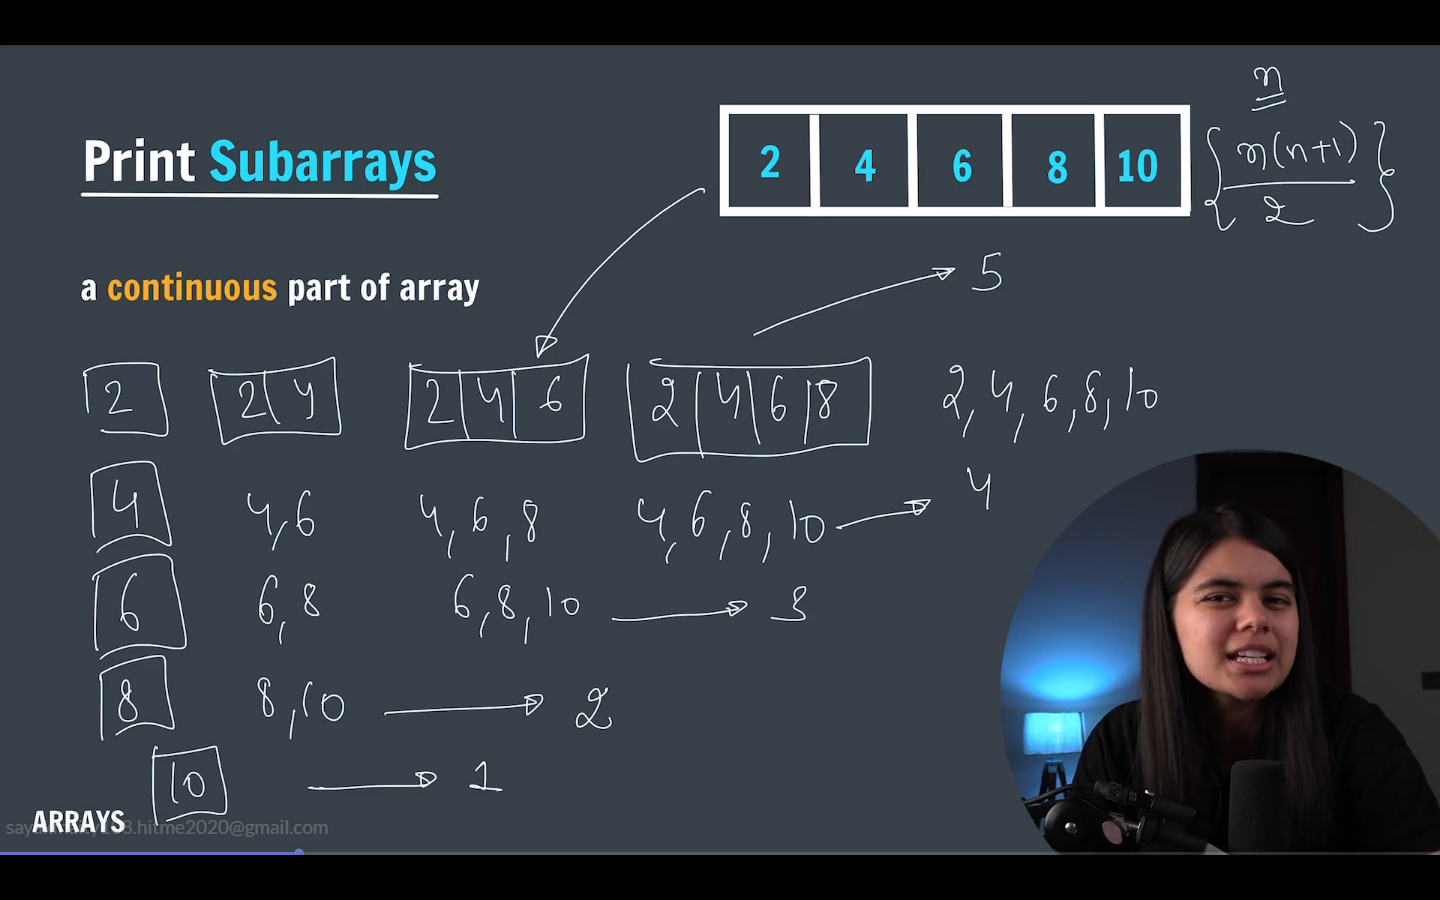 n
Print Subarrays
2 4 6 8 10
{ n(n+1) / 2 }
a continuous part of array
5
2 2 4 2 4 6 2 4 6 8 2, 4, 6, 8, 10
4 4, 6 4, 6, 8 4, 6, 8, 10 4
6 6, 8 6, 8, 10 3
8 8, 10 2
10 1
ARRAYS
hitme2020@gmail.com